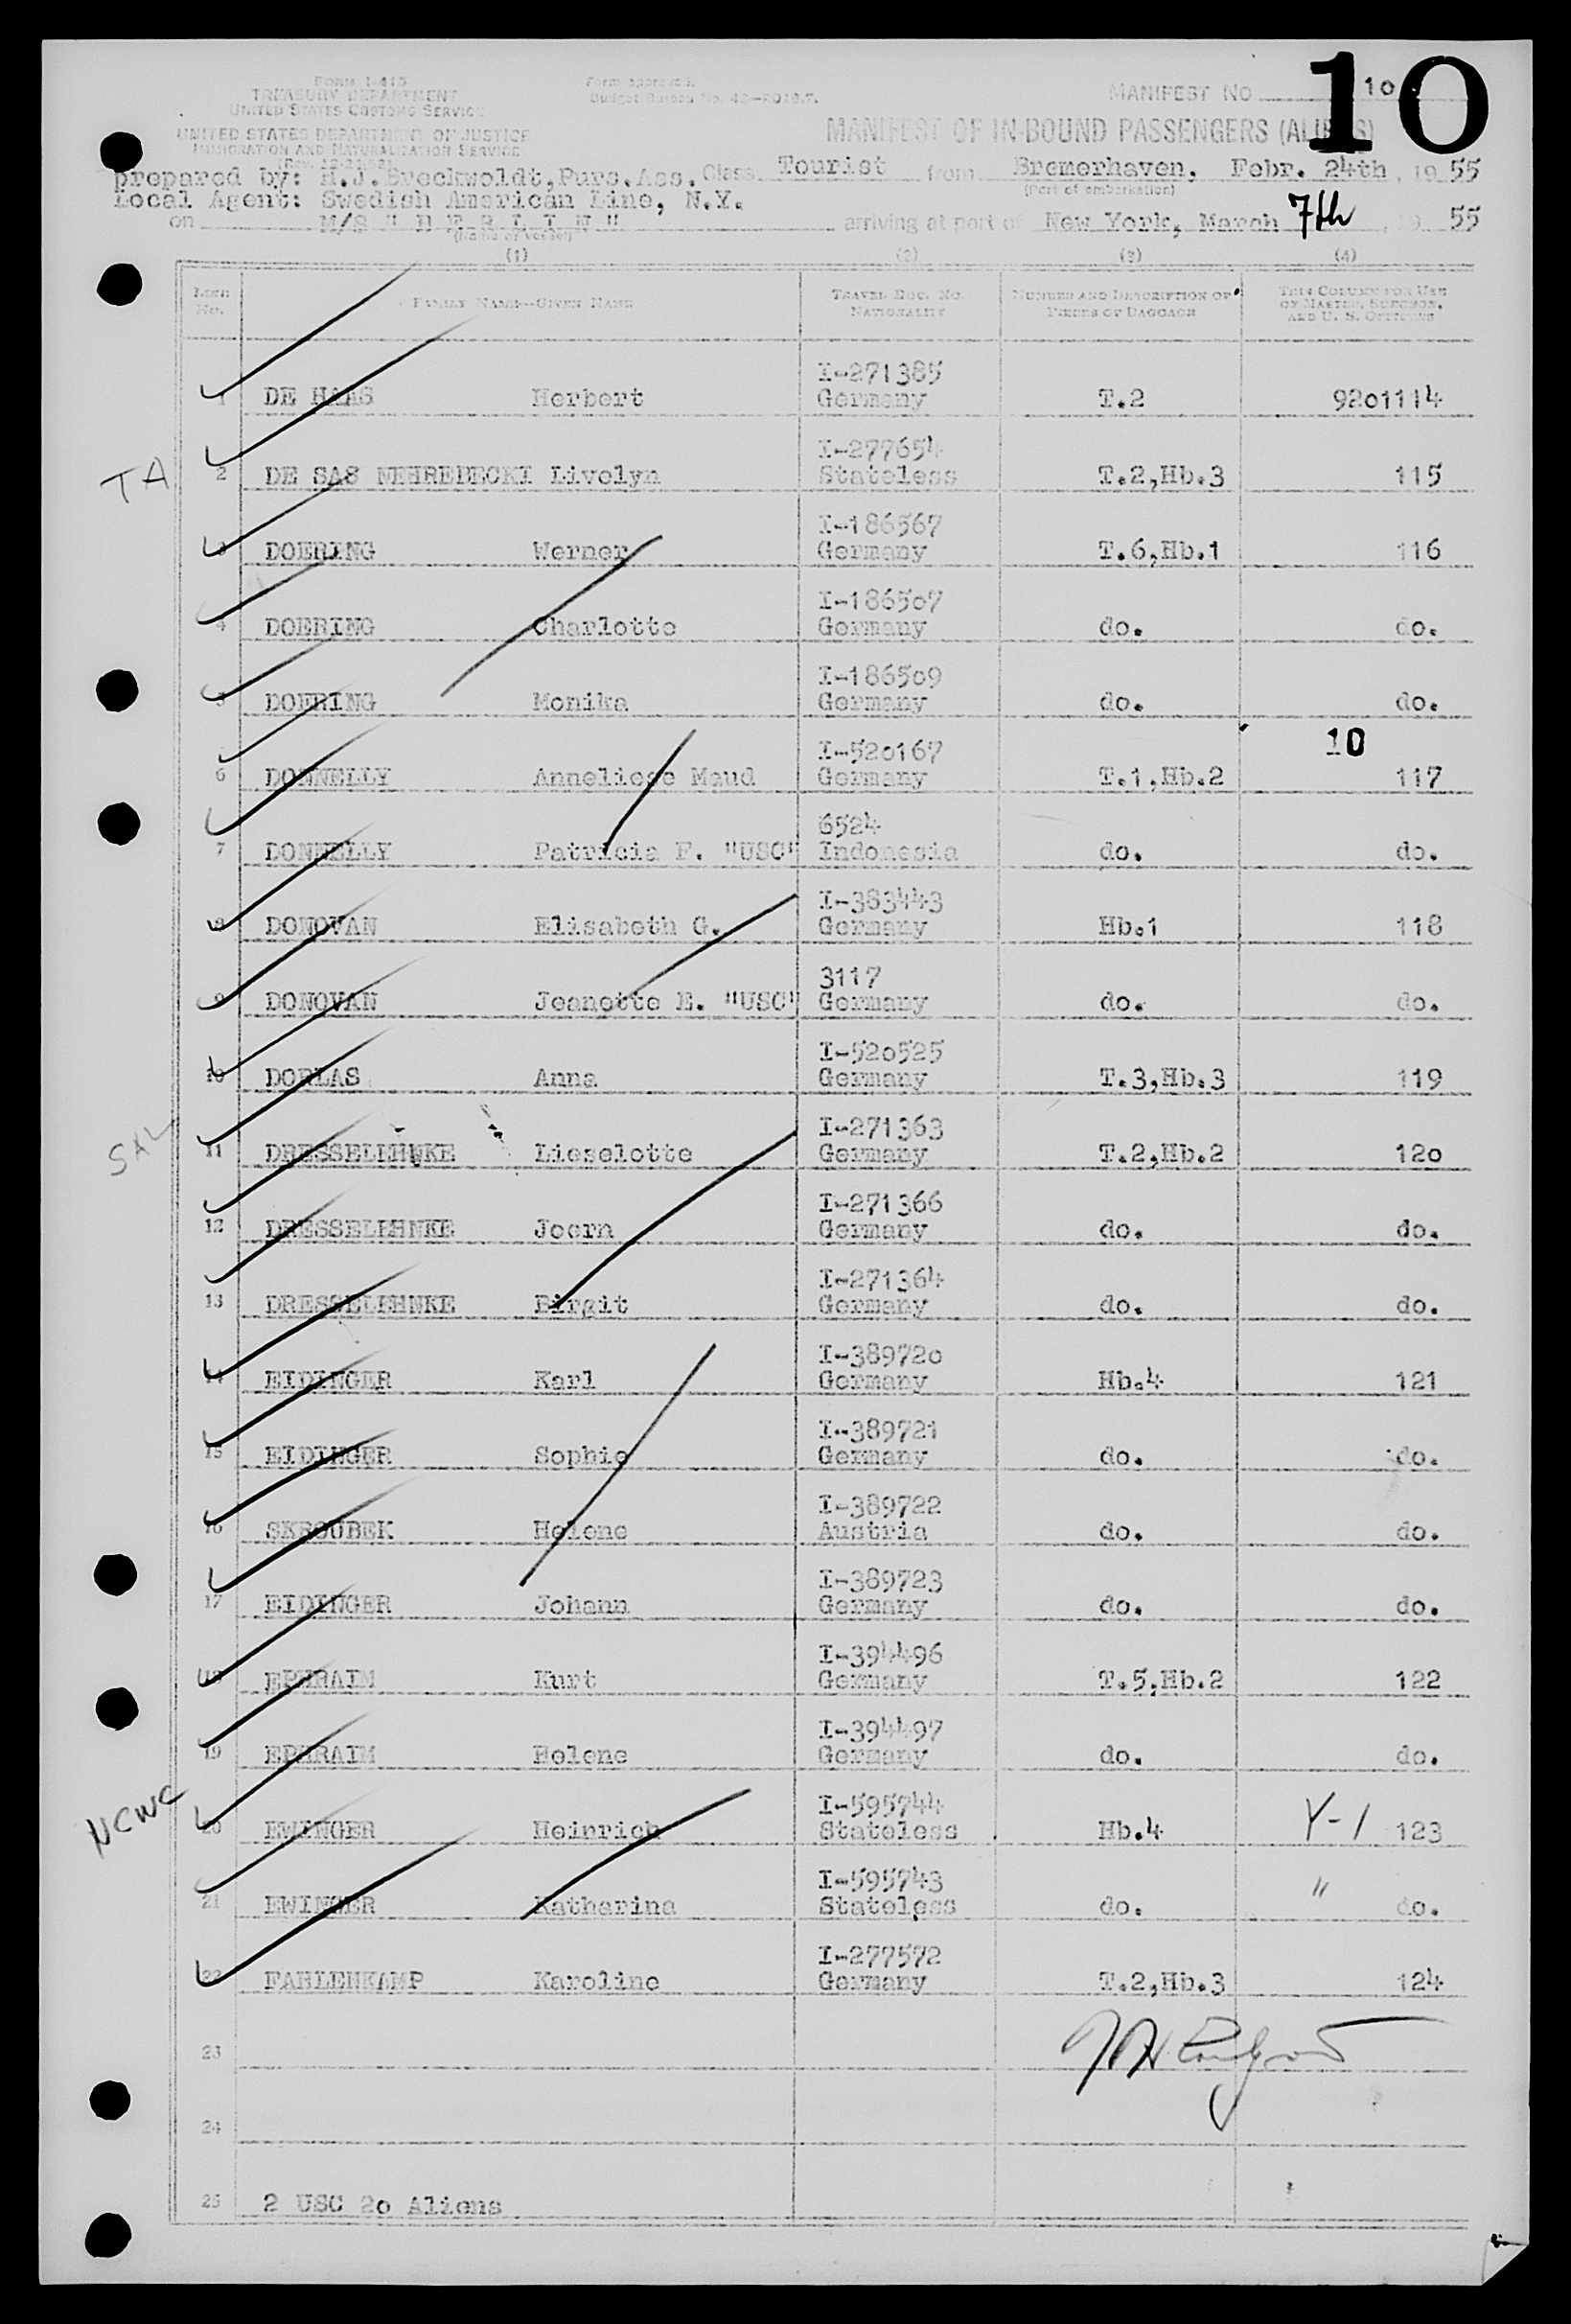 10
Form I-415
TREASURY DEPARTMENT
UNITED STATES CUSTOMS SERVICE
Form approved.
Budget Bureau No. 43-R019.7.
MANIFEST NO. 10
UNITED STATES DEPARTMENT OF JUSTICE
IMMIGRATION AND NATURALIZATION SERVICE
MANIFEST OF IN-BOUND PASSENGERS (ALIENS)
prepared by: H.J.Brockwoldt,Purs.Ass. Class Tourist from Bremerhaven, Febr. 24th, 19 55
(Port of embarkation)
Local Agent: Swedish American Line, N.Y.
on M/S " B E R L I N " arriving at port of New York, March 7th, 19 55
(Name of vessel)
(1) (2) (3) (4)
LINE NO. FAMILY NAME—GIVEN NAME TRAVEL DOC. NO. NATIONALITY NUMBER AND DESCRIPTION OF PIECES OF BAGGAGE THIS COLUMN FOR USE OF MASTER, SURGEON, AND U. S. OFFICERS
I-271385
1 DE HAAS Herbert Germany T.2 9201114
I-277654
TA 2 DE SAS NEHREBECKI Livelyn Stateless T.2,Hb.3 115
I-186567
3 DOERING Werner Germany T.6,Hb.1 116
I-186507
4 DOERING Charlotte Germany do. do.
I-186509
5 DOERING Monika Germany do. do.
I-520167 10
6 DONNELLY Anneliese Maud Germany T.1,Hb.2 117
6524
7 DONNELLY Patricia F. "USC" Indonesia do. do.
I-383443
8 DONOVAN Elisabeth G. Germany Hb.1 118
3117
9 DONOVAN Jeanette E. "USC" Germany do. do.
I-520525
10 DORLAS Anna Germany T.3,Hb.3 119
I-271363
SAL 11 DRESSELLEHNKE Lieselotte Germany T.2,Hb.2 120
I-271366
12 DRESSELLEHNKE Joern Germany do. do.
I-271364
13 DRESSELLEHNKE Birgit Germany do. do.
I-389720
14 EIDINGER Karl Germany Hb.4 121
I-389721
15 EIDINGER Sophie Germany do. do.
I-389722
16 SKROUBEK Helene Austria do. do.
I-389723
17 EIDINGER Johann Germany do. do.
I-394496
18 EPHRAIM Kurt Germany T.5,Hb.2 122
I-394497
19 EPHRAIM Helene Germany do. do.
I-595744
NCWC 20 EWINGER Heinrich Stateless Hb.4 Y-1 123
I-595743
21 EWINGER Katharina Stateless do. " do.
I-277572
22 FAHLENKAMP Karoline Germany T.2,Hb.3 124
23
24
25 2 USC 20 Aliens